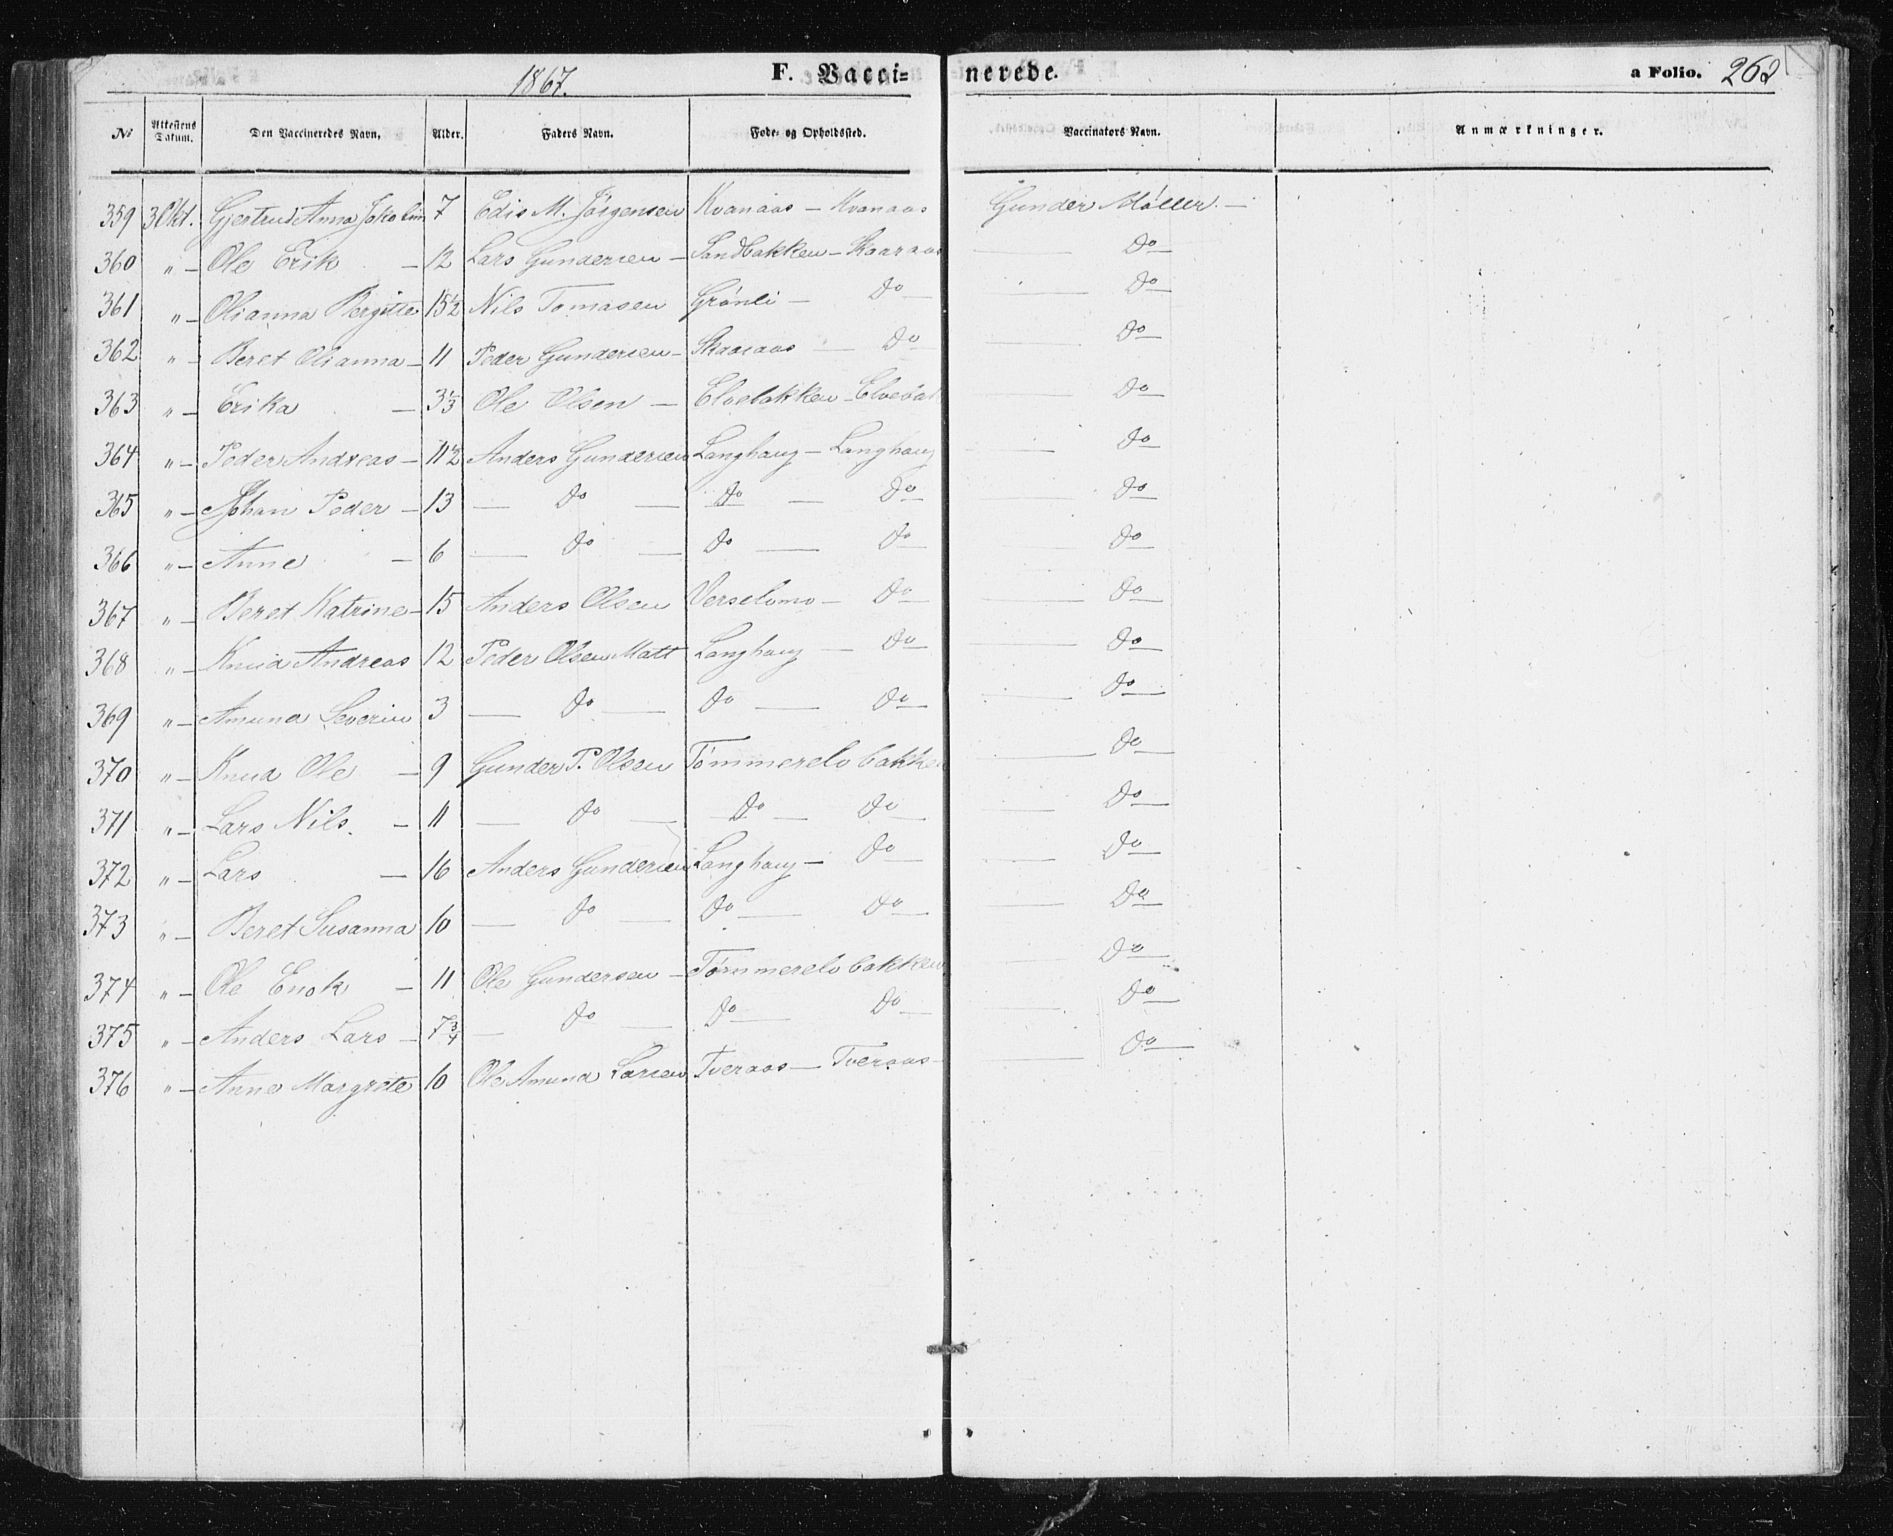 1867. F. Vacci= nerede. a Folio. 262
No Attestens Datum. Den Vaccineredes Navn. Alder. Faders Navn. Føde- og Opholdssted. Vaccinators Navn. Anmærkninger.
359 3 Okt. Gjertrud Anna Jakolin 7 Edis M. Jörgensen Kvanaas – Kvanaas Gunder Møller. –
360 " – Ole Erik – 12 Lars Gundersen – Sandbakken – Skaaraas — Do –
361 " – Olianna Bergitte 15½ Nils Tomasen Grönli – Do — Do –
362 " – Beret Olianna – 11 Peder Gundersen – Skaaraas – Do — Do –
363 " – Erika – 3⅓ Ole Olsen – Elvebakken – Elvebak — Do –
364 " – Peder Andreas – 11½ Anders Gundersen Langhaug – Langhaug — Do –
365 " – Johan Peder – 13 — Do — Do — Do — Do –
366 " – Anne – 6 — Do — Do — Do — Do –
367 " – Beret Katrine – 15 Anders Olsen Verselvmo – Do — Do –
368 " – Knud Andreas 12 Peder Olsen Matt Langhaug – Do — Do –
369 " – Amund Severin 3 — Do — Do — Do — Do –
370 " – Knud Ole – 9 Gunder P. Olsen Tømmerelvbakken — Do –
371 " – Lars Nils. – 11 — Do — Do — Do — Do –
372 " – Lars – 16 Anders Gundersen Langhaug – Do — Do –
373 " – Beret Susanna 10 — Do — Do — Do — Do –
374 " – Ole Enok – 11 Ole Gundersen – Tømmerelvbakken — Do –
375 " – Anders Lars – 7¾ — Do — Do — Do — Do –
376 " – Anne Margrete 10 Ole Amund Larsen Tveraas – Tveraas – — Do –